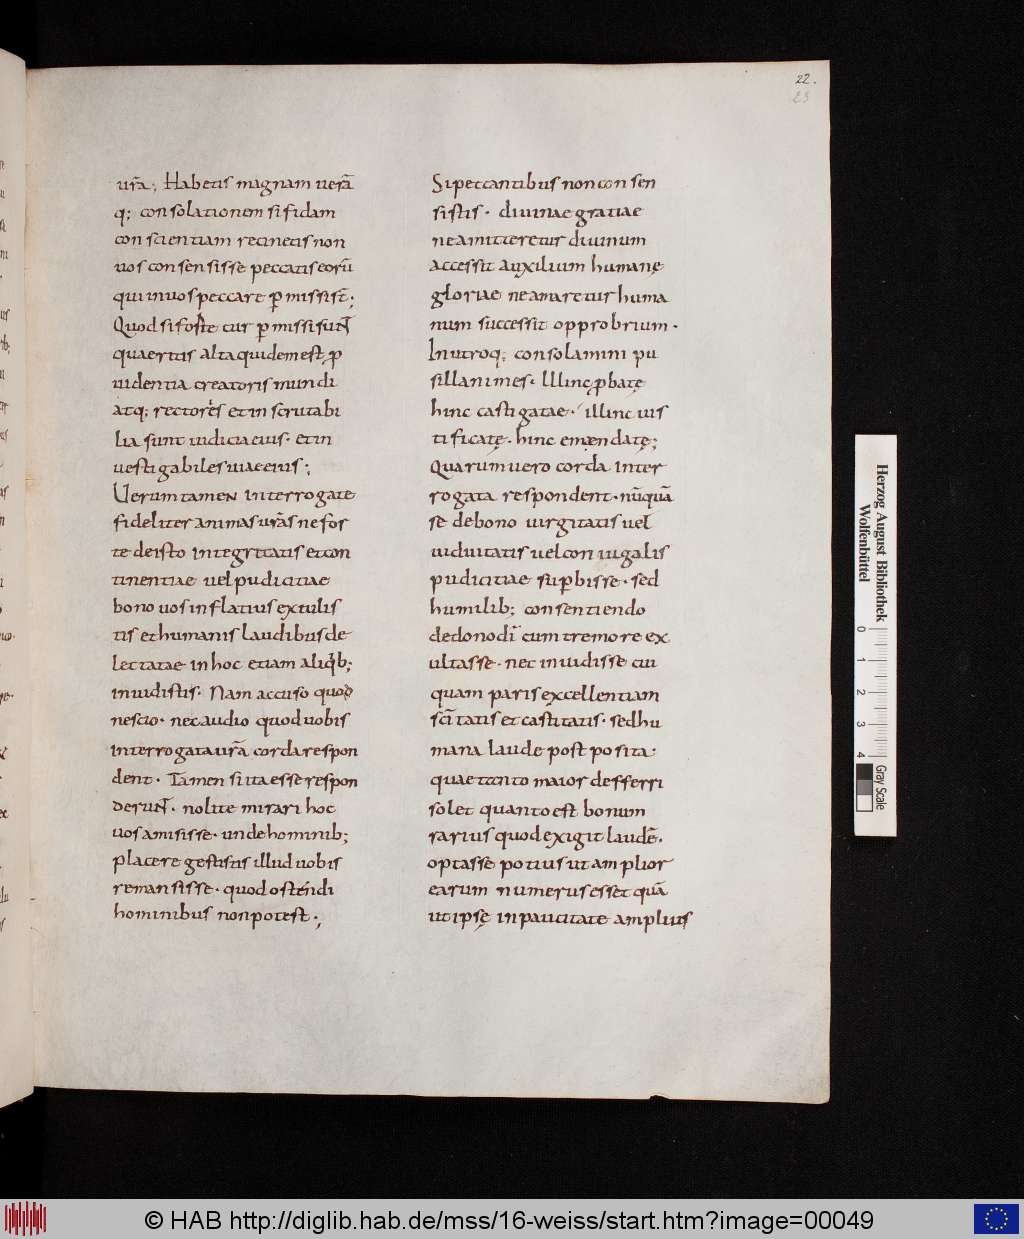 22.
23
urā; Habetis magnam uerā
q; consolationem si fidam
conscientiam retinetis non
uos consensisse peccatis eorū
qui in uos peccare p̱missist̄;
Quod si forte cur p̱missi sunt̄
quaeritis alta quidem est, p
uidentia creatoris mundi
atq; rectoris et inscrutabi
lia sunt iudicia eius. et in
uestigabiles uiae eius;
Uerumtamen interrogate
fideliter animas urās ne for
te de isto integritatis et con
tinentiae uel pudicitiae
bono uos inflatius extulis
tis et humanis laudibus de
lectatae in hoc etiam aliqb;
inuidistis. Nam accuso quod
nescio. nec audio quod uobis
interrogata urā corda respon
dent. Tamen si ita esse respon
derunt̄. nolite mirari hoc
uos amisisse. unde hominib;
placere gestistis illud uobis
remansisse. quod ostendi
hominibus non potest;
Si peccantibus non con sen
sistis. diuinae gratiae
ne amitteretur diuinum
accessit auxilium humanę
gloriae ne amaretur huma
num successit opprobrium.
In utroq; consolamini pu
sillanimes. Illinc p̱batę
hinc castigatae. illinc ius
tificatę. hinc emændatę;
Quarum uero corda inter
rogata respondent. nūquā
se de bono uirgitatis uel
uiduitatis uel coniugalis
pudicitiae sup̱bisse. sed
humilib; consentiendo
de dono dī cum tremore ex
ultasse. nec inuidisse cui
quam paris excellentiam
scītatis et castitatis. sed hu
mana laude postposita.
quae tanto maior defferri
solet quanto est bonum
rarius quod exigit laudē.
optasse potius ut amplior
earum numerus esset quā
ut ipsę in paucitate amplius
Herzog August Bibliothek
Wolfenbüttel
0 1 2 3 4
Gray Scale
© HAB http://diglib.hab.de/mss/16-weiss/start.htm?image=00049